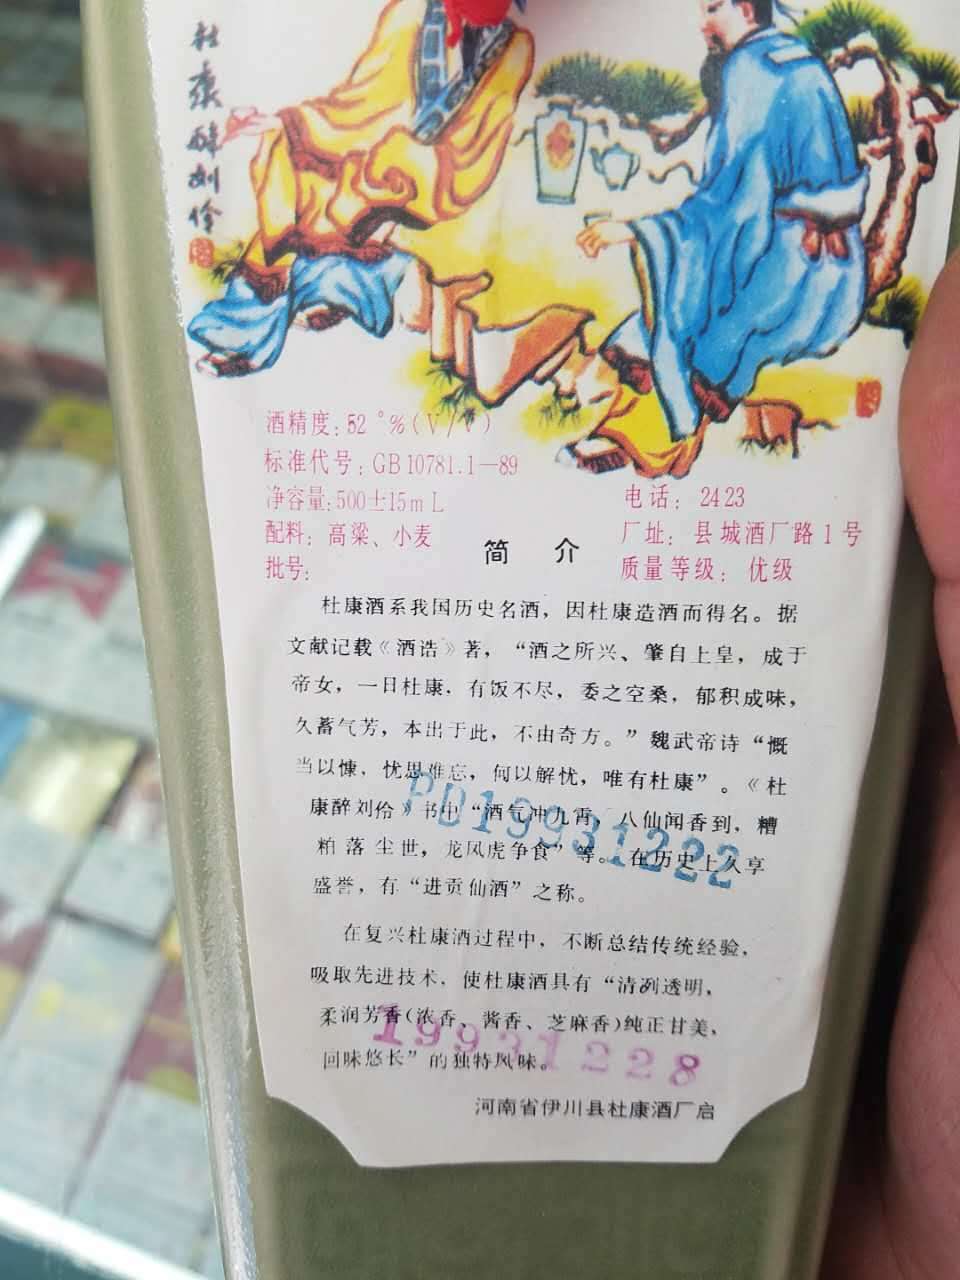 杜康醉刘伶
酒精度：52°%（V/V）
标准代号：GB10781.1—89
净容量：500±15mL
配料：高粱、小麦
批号：
电话：2423
厂址：县城酒厂路1号
质量等级：优级
简 介
杜康酒系我国历史名酒，因杜康造酒而得名。据
文献记载《酒诰》著，“酒之所兴、肇自上皇，成于
帝女，一曰杜康．有饭不尽，委之空桑，郁积成味，
久蓄气芳，本出于此，不由奇方。”魏武帝诗“慨
当以慷．忧思难忘，何以解忧，唯有杜康”。《杜
康醉刘伶》书中“酒气冲九霄，八仙闻香到．糟
粕落尘世，龙凤虎争食”等。在历史上久享
盛誉，有“进贡仙酒”之称。
PD19931222
在复兴杜康酒过程中，不断总结传统经验，
吸取先进技术．使杜康酒具有“清冽透明，
柔润芳香（浓香、酱香、芝麻香）纯正甘美、
回味悠长”的独特风味。
19931228
河南省伊川县杜康酒厂启